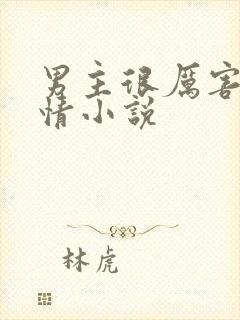 男主很厉害
情小说
林虎